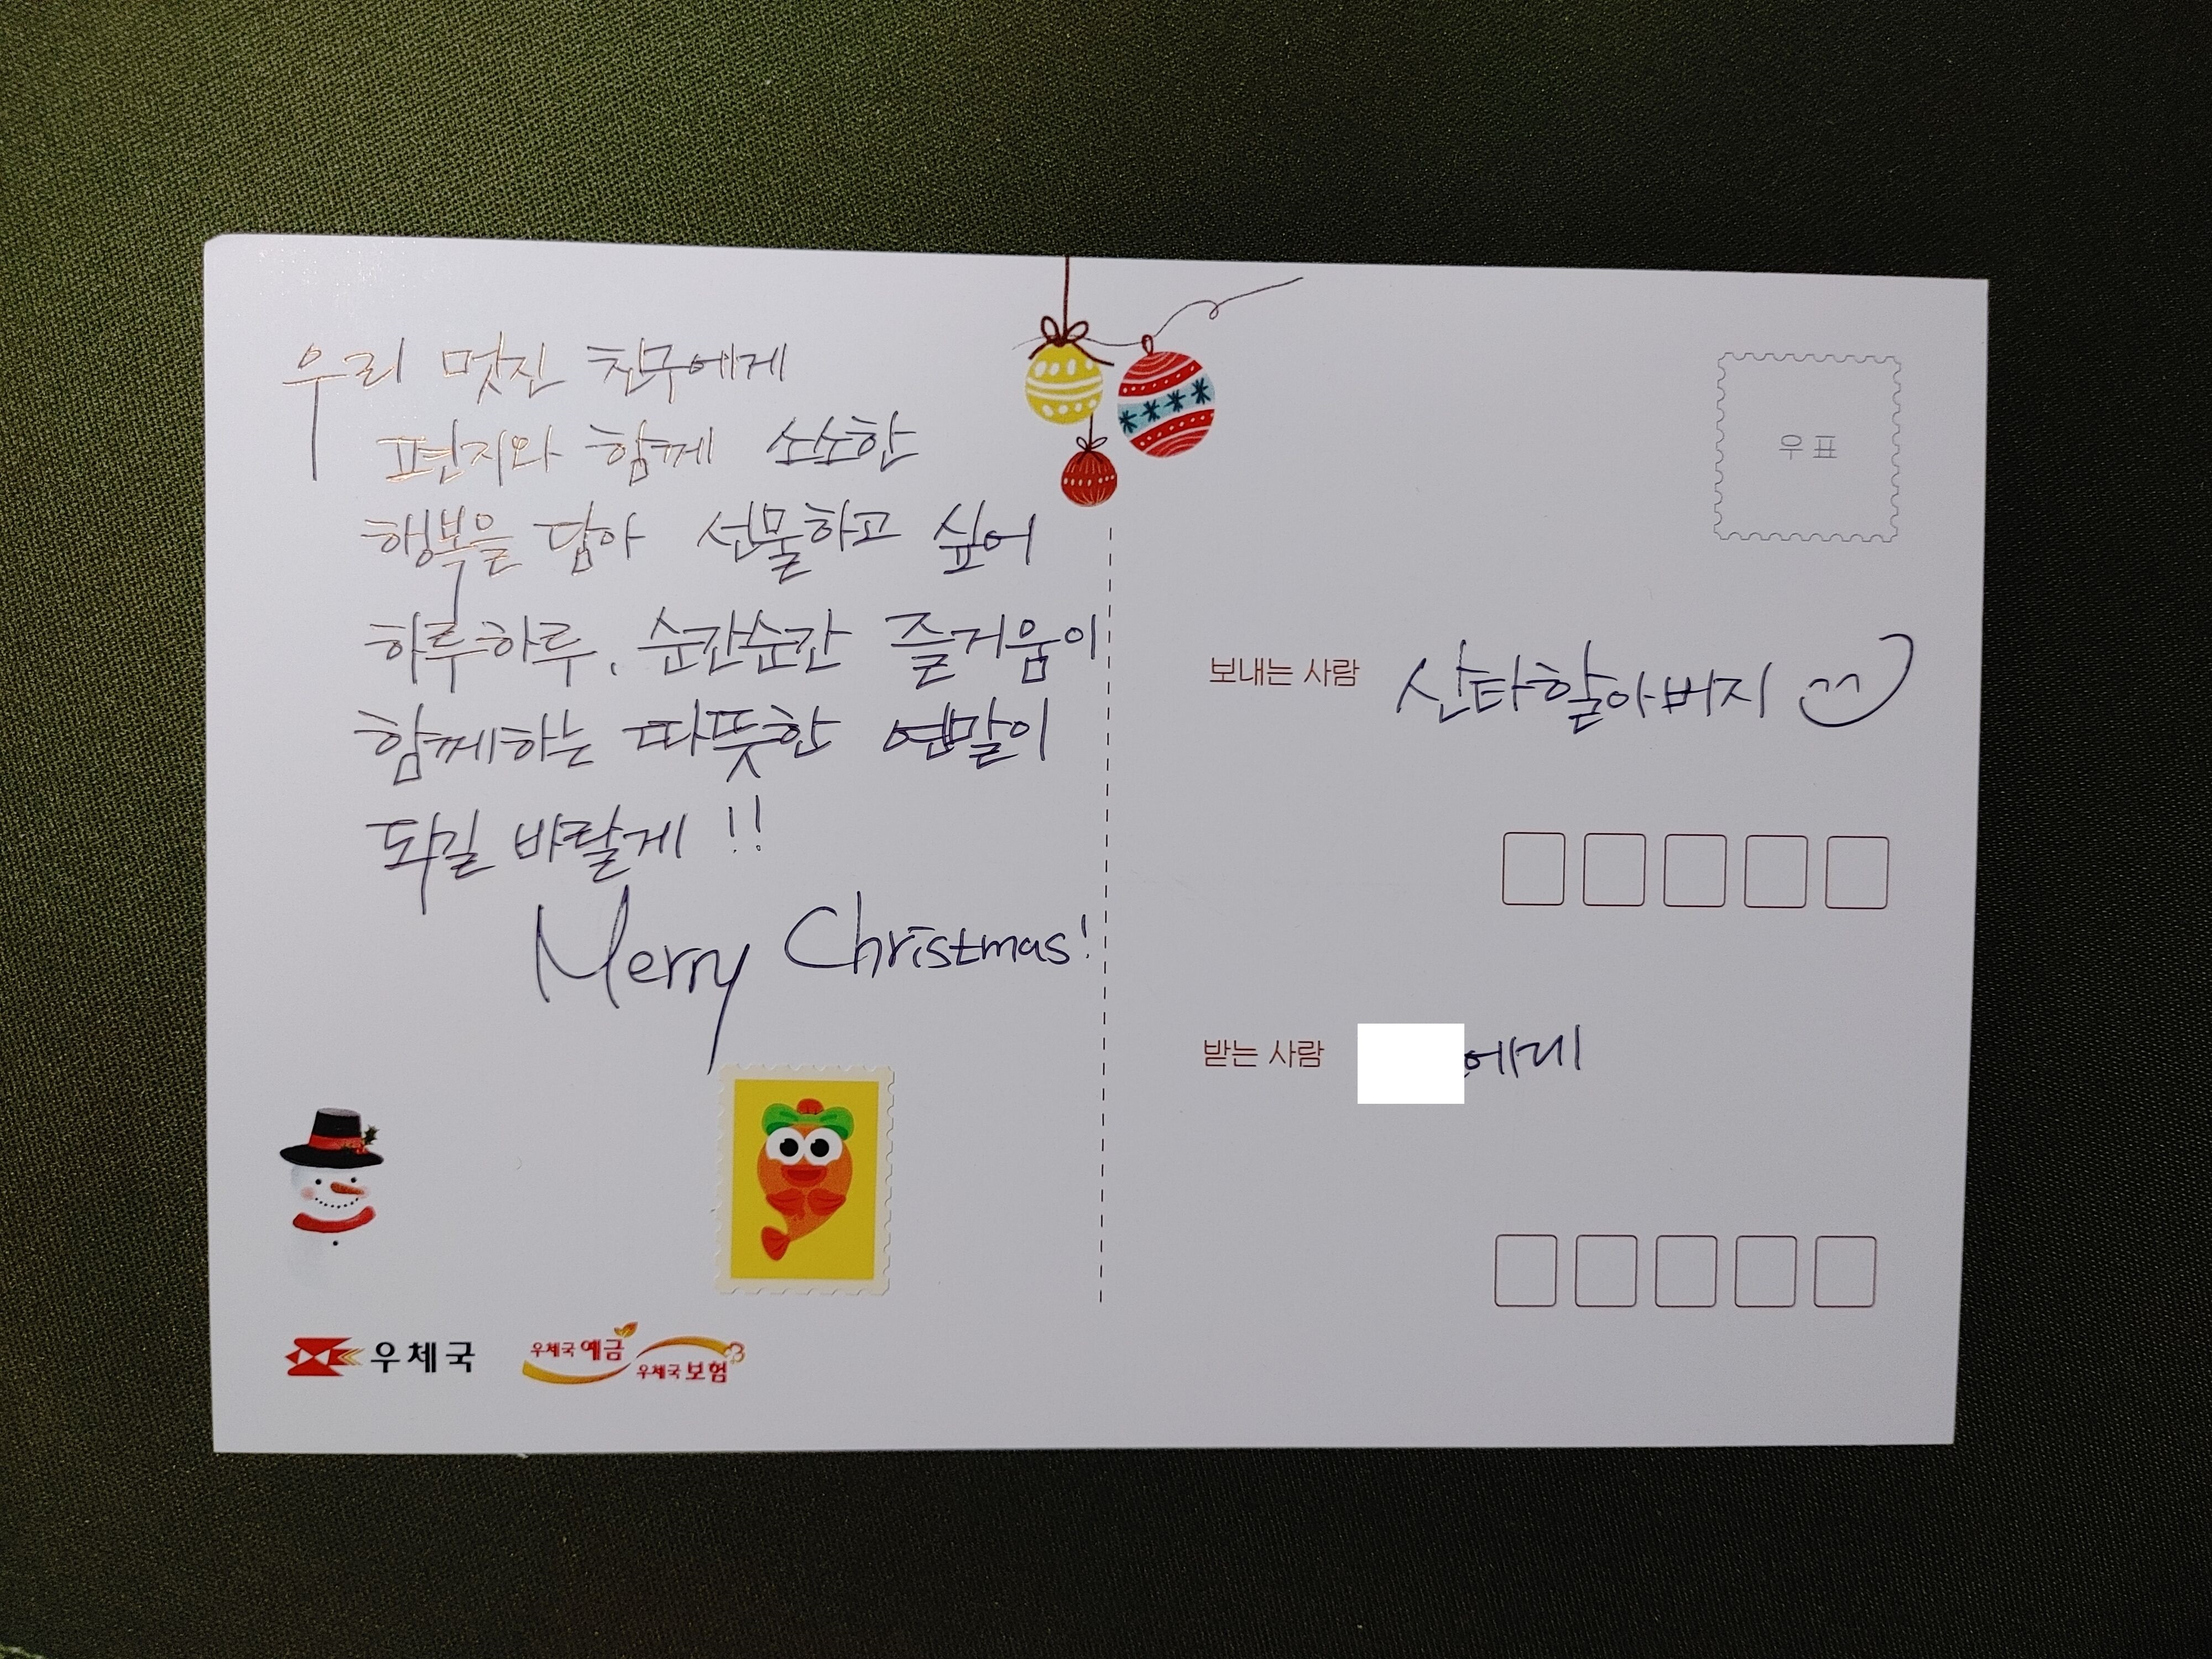 우리 멋진 친구에게
편지와 함께 소소한
행복을 담아 선물하고 싶어
하루하루, 순간순간 즐거움이
함께하는 따뜻한 연말이
되길 바랄게 !!
Merry Christmas!
우체국
우체국 예금
우체국 보험
우표
보내는 사람 산타할아버지
받는 사람 에게